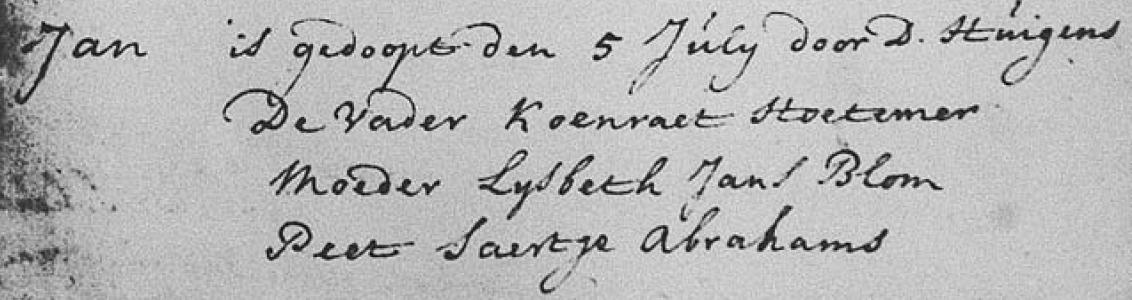 Jan is gedoopt den 5 July door D. Húigens
De Vader Koenraet Hoetemer
Moeder Lysbeth Jans Blom
Peet Saertje Abrahams